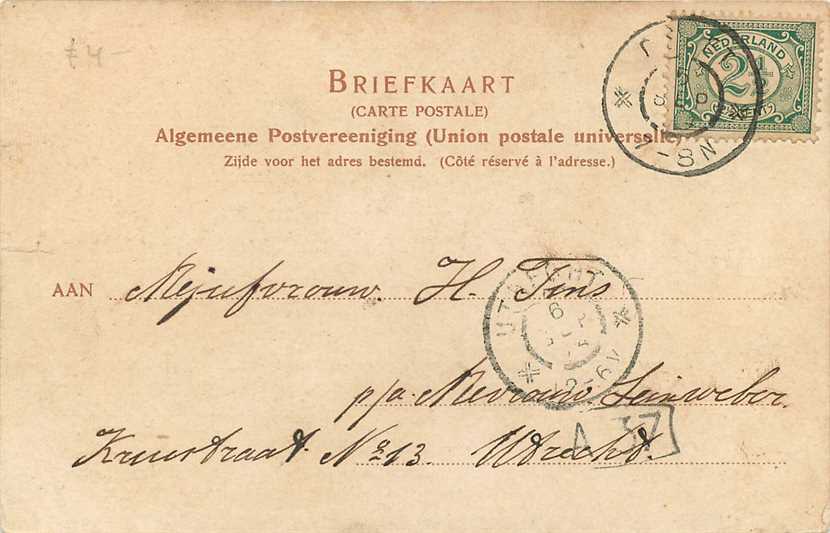 £4-
NEDERLAND
2½
CENT
7-8N
BRIEFKAART
(CARTE POSTALE)
Algemeene Postvereeniging (Union postale universelle)
Zijde voor het adres bestemd. (Côté réservé à l'adresse.)
AAN Mejufvrouw. H. Tins
UTRECHT
6
12-6V
p/a. Mevrouw Leinweber.
A 37
Kruisstraat. No 13. Utrecht.